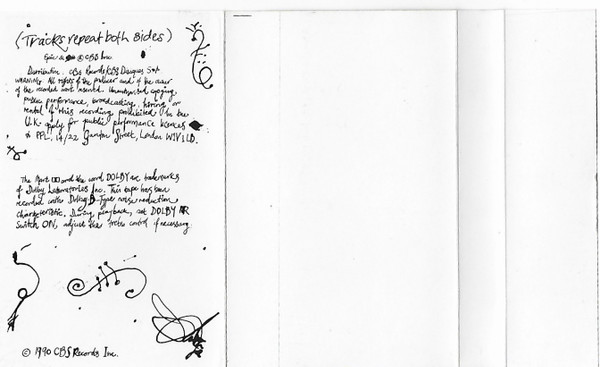 (Tracks repeat both sides)
Epic is ® CBS Inc.
Distribution: CBS Records/CBS Disques S.A.
WARNING: All rights of the producer and of the owner
of the recorded work reserved. Unauthorised copying,
public performance, broadcasting, hiring or
rental of this recording prohibited. In the
U.K. apply for public performance licences
to PPL, 14/22 Ganton Street, London W1V 1LD.
The Mark and the word DOLBY are trademarks
of Dolby Laboratories Inc. This tape has been
recorded with Dolby B-Type noise reduction
characteristic. During playback, set DOLBY NR
switch ON, adjust the treble control if necessary.
© 1990 CBS Records Inc.